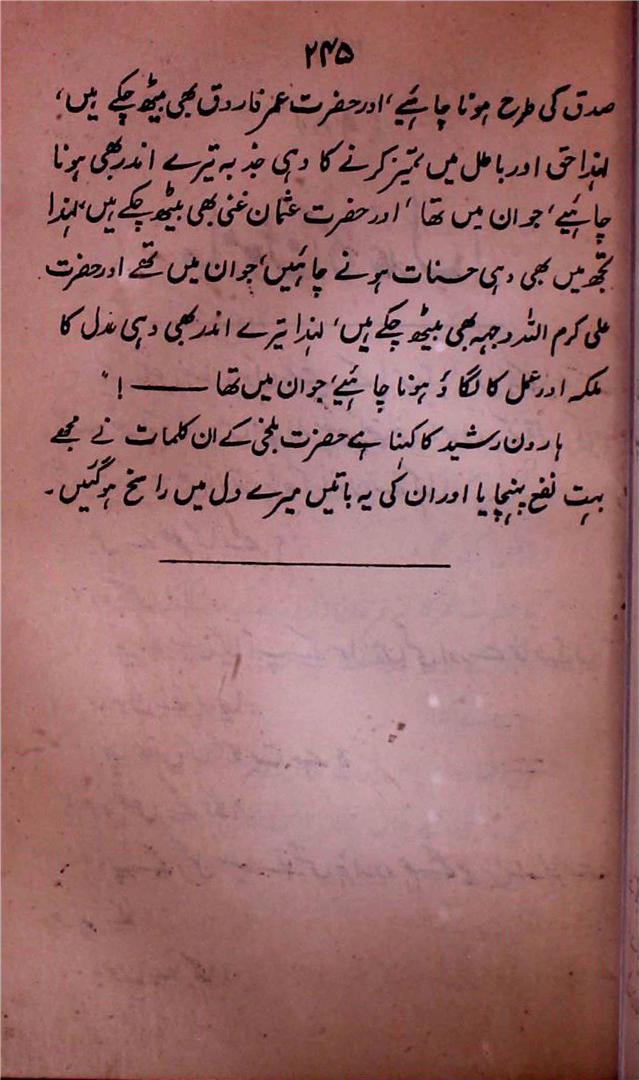 ۲۴۵
صدق کی طرح ہونا چاہئیے، اور حضرت عمر فاروق بھی بیٹھ چکے ہیں،
لہٰذا حق اور باطل میں تمیز کرنے کا وہی جذبہ تیرے اندر بھی ہونا
چاہئیے، جو ان میں تھا، اور حضرت عثمان غنی بھی بیٹھ چکے ہیں، لہٰذا
تجھ میں بھی وہی حسنات ہونے چاہئیں، جو ان میں تھے اور حضرت
علی کرم اللہ وجہہ بھی بیٹھ چکے ہیں، لہٰذا تیرے اندر بھی وہی عدل کا
ملکہ اور عمل کا لگاؤ ہونا چاہئیے، جو ان میں تھا ——— !"
ہارون رشید کا کہنا ہے حضرت بلخی کے ان کلمات نے مجھے
بہت نفع پہنچایا اور ان کی یہ باتیں میرے دل میں راسخ ہوگئیں۔